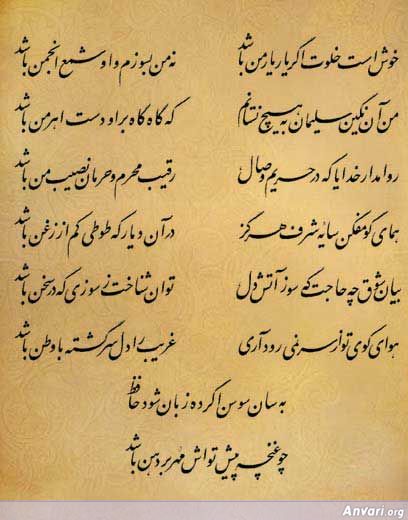 خوش است خلوت اگر یار یار من باشد نه من بسوزم و او شمع انجمن باشد
من آن نگین سلیمان به هیچ نستانم که گاه گاه بر او دست اهرمن باشد
روا مدار خدایا که در حریم وصال رقیب محرم و حرمان نصیب من باشد
همای گو مفکن سایهٔ شرف هرگز در آن دیار که طوطی کم از زغن باشد
بیان شوق چه حاجت که سوز آتش دل توان شناخت ز سوزی که در سخن باشد
هوای کوی تو از سر نمی رود آری غریب را دل سرگشته با وطن باشد
به سان سوسن اگر ده زبان شود حافظ
چو غنچه پیش تواش مهر بر دهن باشد
Anvari.org